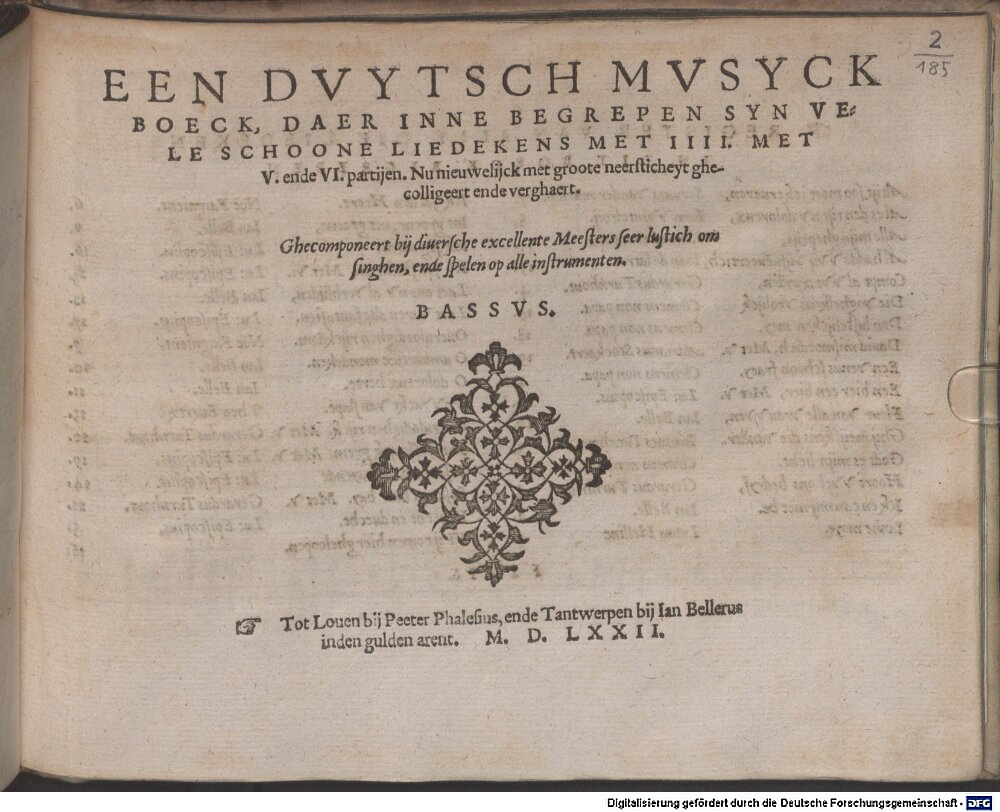 2
185
EEN DVYTSCH MVSYCK
BOECK, DAER INNE BEGREPEN SYN VE-
LE SCHOONE LIEDEKENS MET IIII. MET
V. ende VI. partijen. Nu nieuwelijck met groote neersticheyt ghe-
colligeert ende verghaert.
Ghecomponeert bij diuersche excellente Meesters seer lustich om
singhen, ende spelen op alle instrumenten.
BASSVS.
☞ Tot Louen bij Peeter Phalesius, ende Tantwerpen bij Ian Bellerus
inden gulden arent. M. D. LXXII.
Digitalisierung gefördert durch die Deutsche Forschungsgemeinschaft - DFG